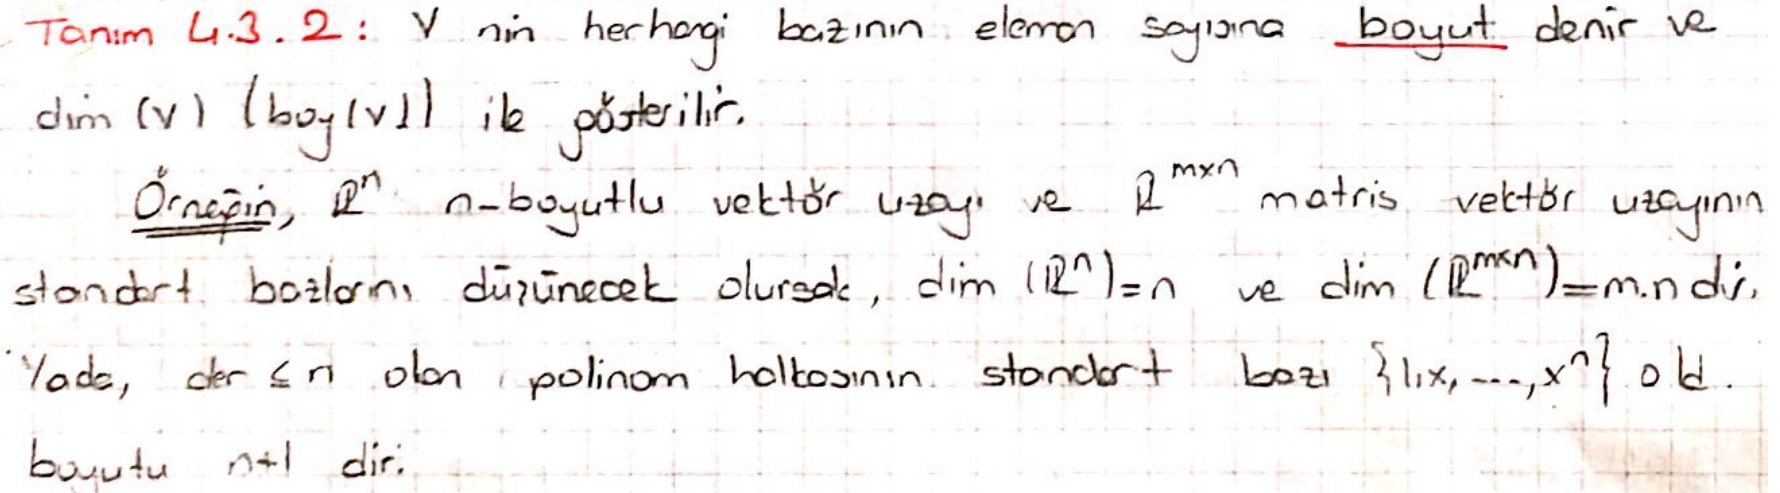 Tanım 4.3.2: V nin herhangi bazının eleman sayısına boyut denir ve
dim (V) (boy(V)) ile gösterilir.
Örneğin, ℝⁿ n-boyutlu vektör uzayı ve ℝᵐˣⁿ matris vektör uzayının
standart bazlarını düşünecek olursak, dim (ℝⁿ)=n ve dim (ℝᵐˣⁿ)=m.n dir.
Yada, der ≤ n olan polinom halkasının standart bazı {1,x,---,xⁿ} old.
boyutu n+1 dir.